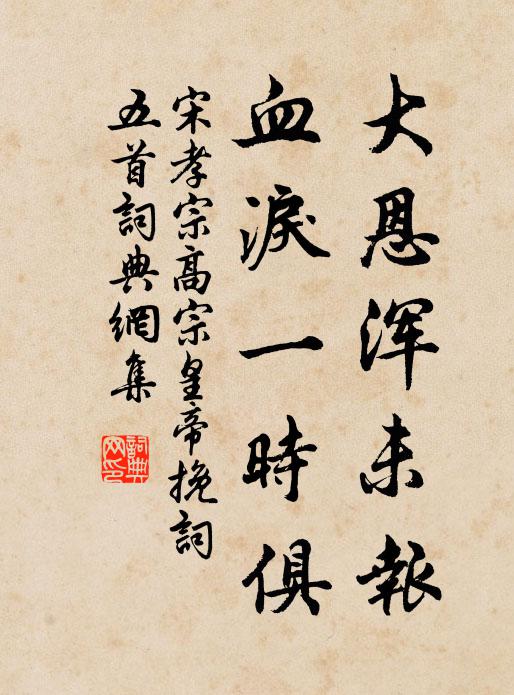 大恩浑未報
血淚一時俱
宋孝宗高宗皇帝挽詞
五首詞典網集
詞典
网印